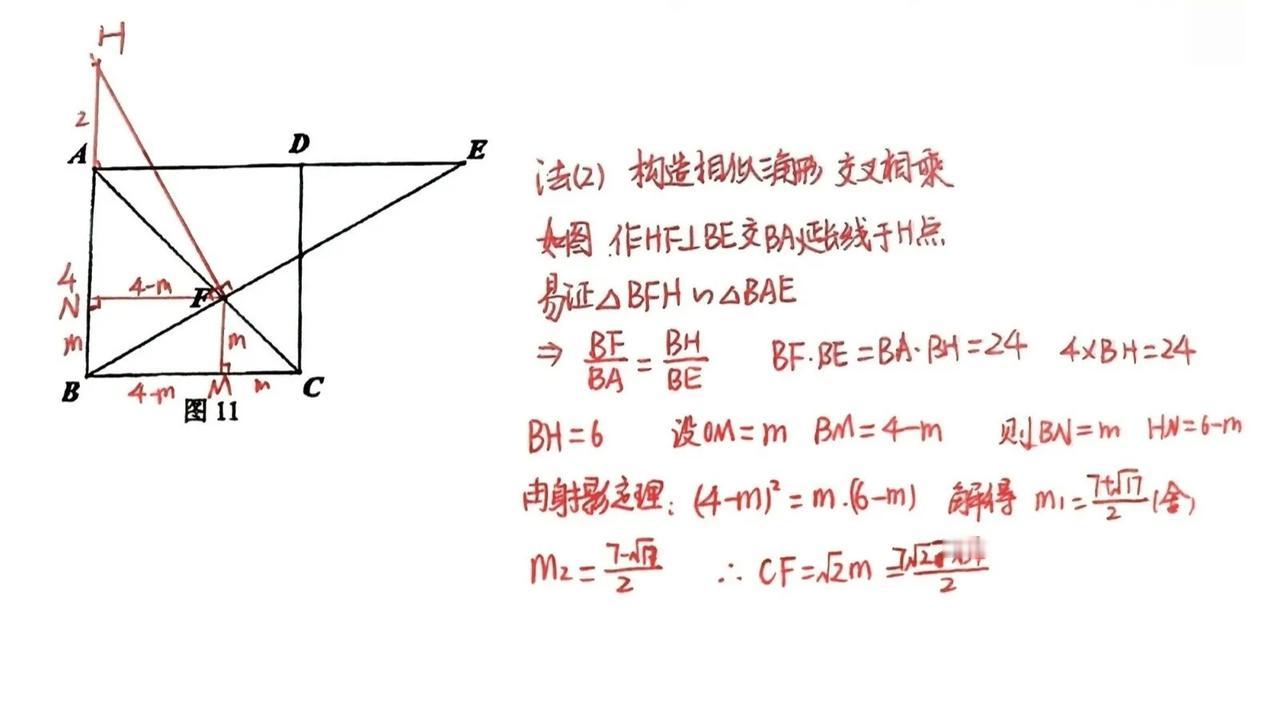 H
2
A
D
E
4
N
4-m
F
m
m
B
4-m
M
m
C
图 11
法(2) 构造相似三角形 交叉相乘
如图.作HF⊥BE交BA延长线于H点
易证△BFH∽△BAE
⇒ BF/BA = BH/BE BF·BE=BA·BH=24 4×BH=24
BH=6 设OM=m BM=4-m 则BN=m HN=6-m
由射影定理: (4-m)²=m·(6-m) 解得 m₁=7+√17/2 (舍)
m₂=7-√17/2 ∴ CF=√2m =